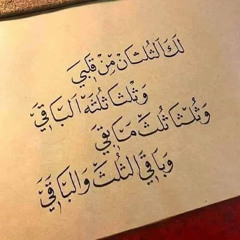 لَكَ الثُلثَانْ مِنْ قَلْبِي
وَثُلثَا ثُلثَهِ البَاقِي
وَثُلثَا ثُلثِ مَا يَبقَى
وَبَاقِي الثُلثِ وَالبَاقِي